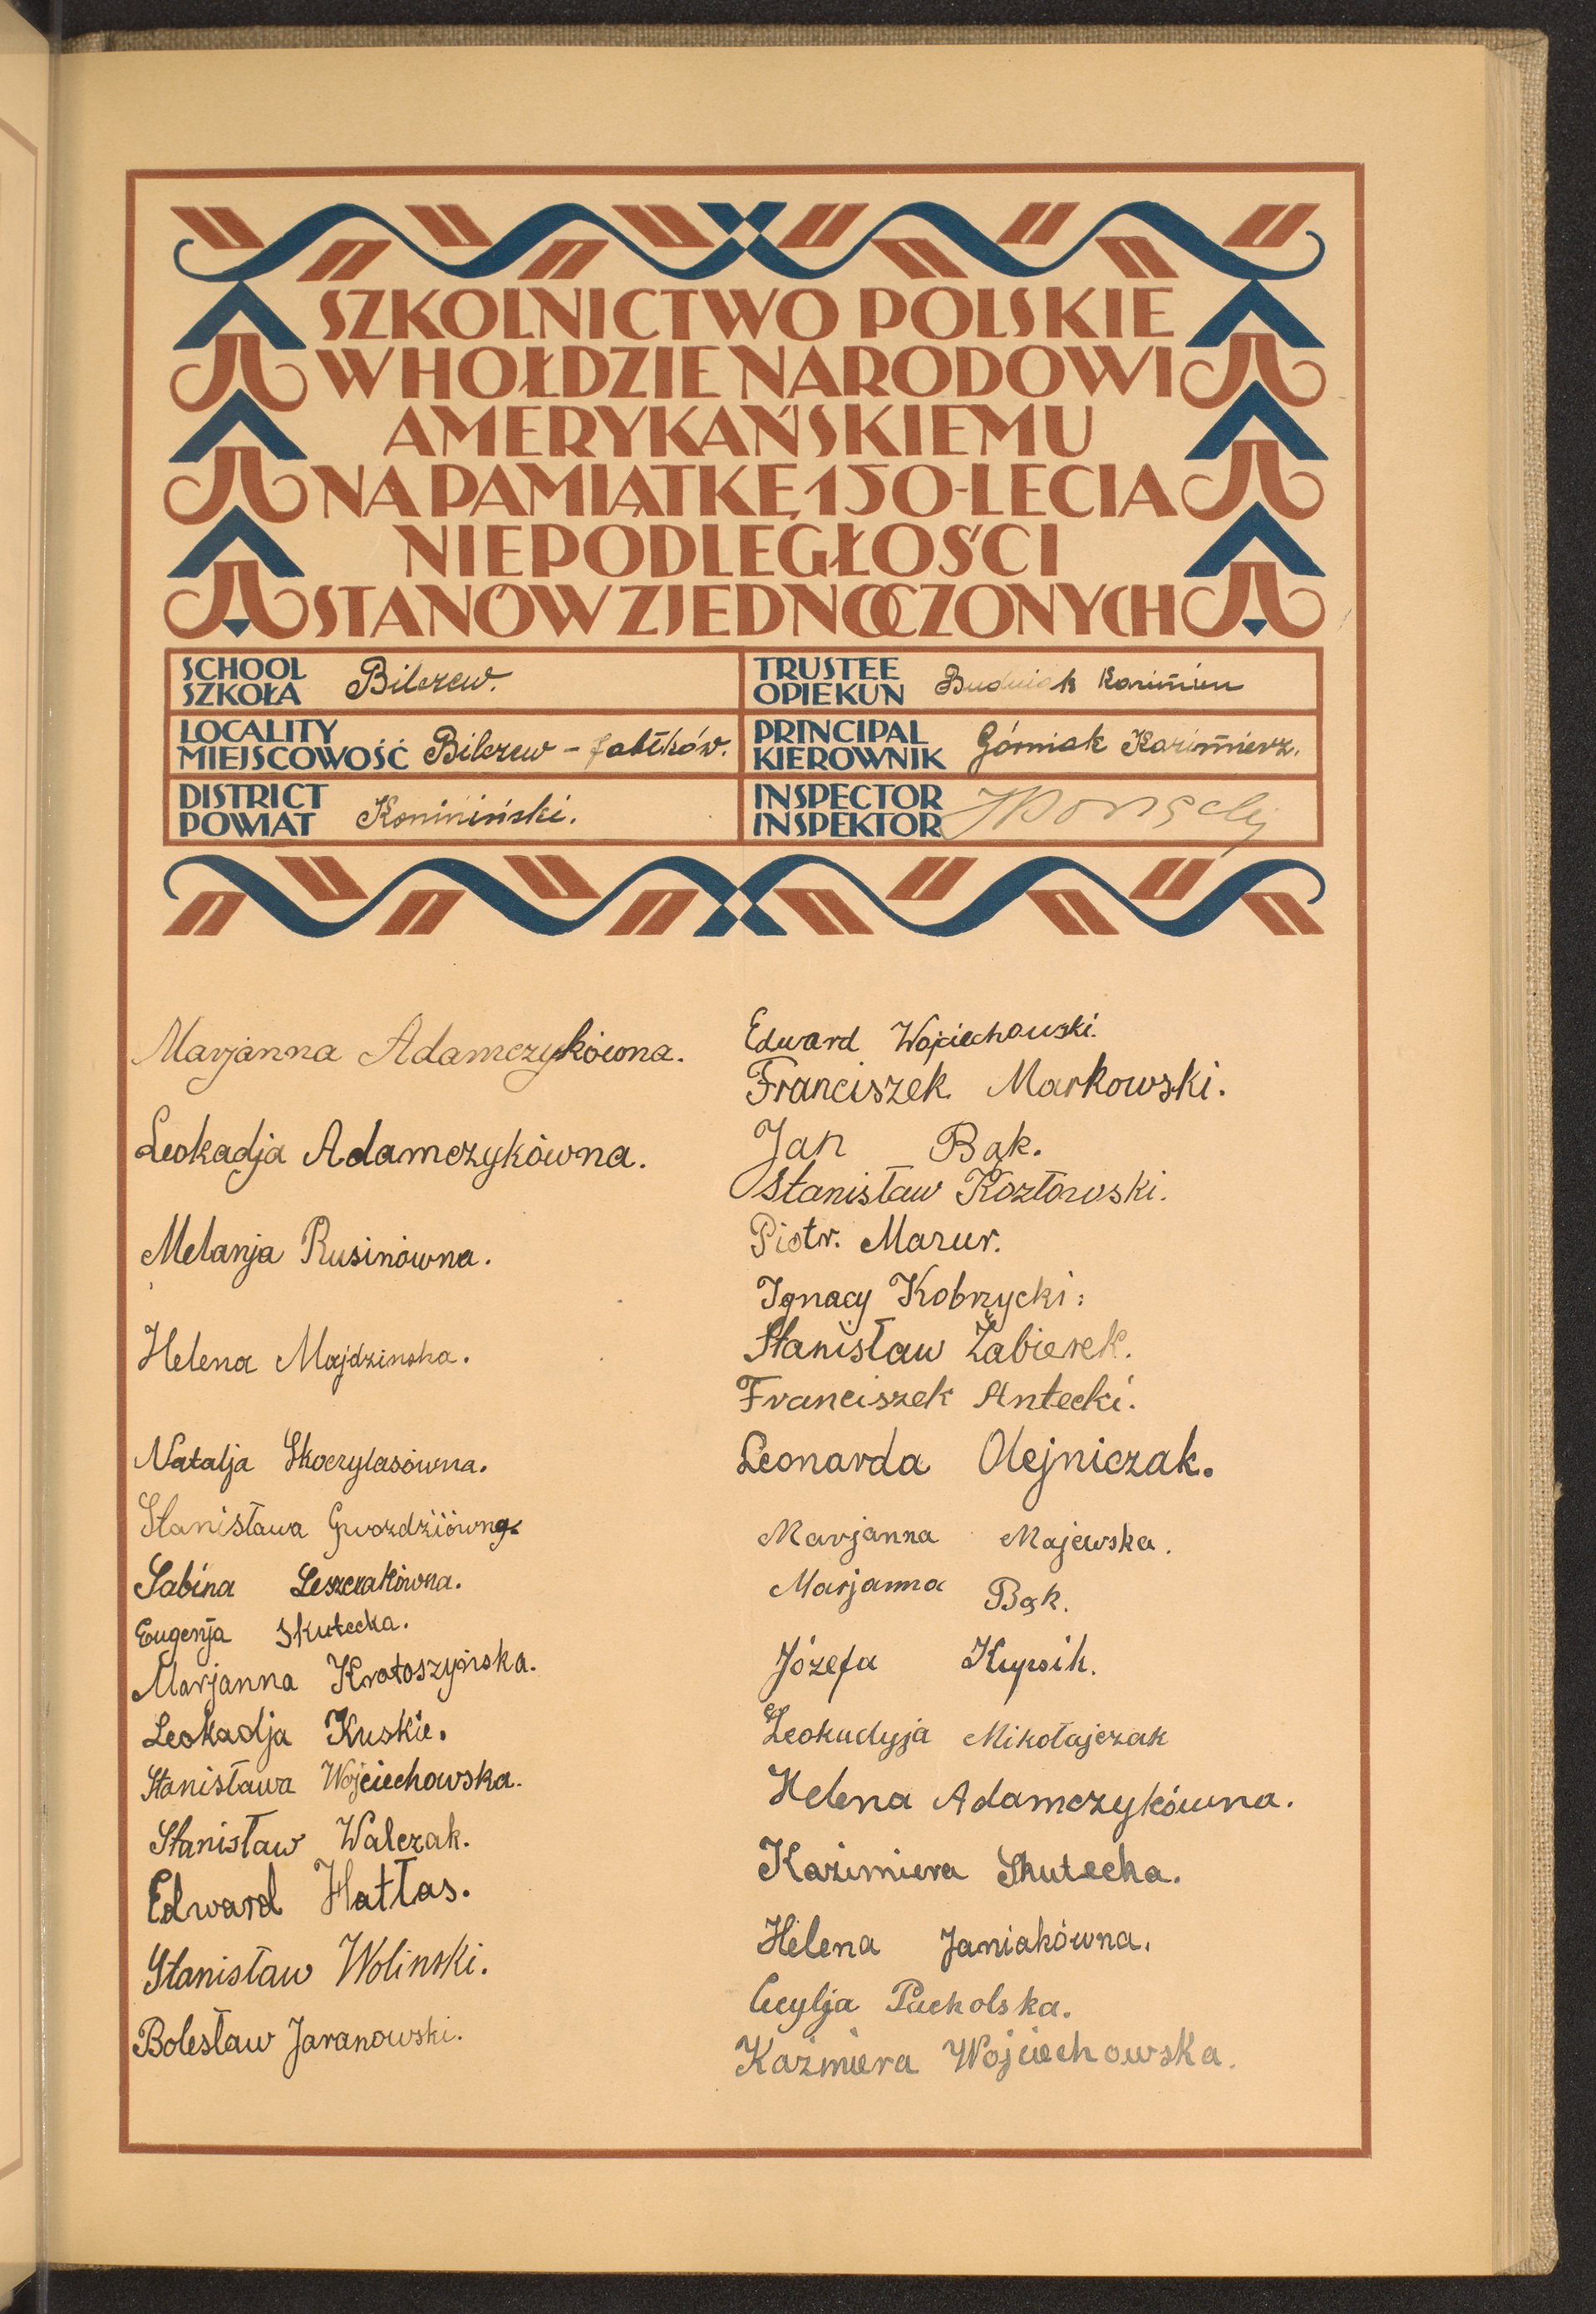 SZKOLNICTWO POLSKIE
W HOŁDZIE NARODOWI
AMERYKAŃSKIEMU
NA PAMIĄTKĘ 150-LECIA
NIEPODLEGŁOŚCI
STANÓW ZJEDNOCZONYCH
SCHOOL
SZKOŁA Bilczew.
TRUSTEE
OPIEKUN Budniak
LOCALITY
MIEJSCOWOŚĆ Bilczew -
PRINCIPAL
KIEROWNIK Górniak Kazimierz.
DISTRICT
POWIAT Koniniński.
INSPECTOR
INSPEKTOR
Marjanna Adamczykówna.
Leokadja Adamczykówna.
Melanja Rusinówna.
Helena Majdzinska.
Natalja Skoczylasówna.
Stanisława
Sabina Leszczakówna.
Eugenja Skutecka.
Marjanna Krotoszyńska.
Leokadja Kuskie.
Stanisława Wojciechowska.
Stanisław Walczak.
Edward Hattas.
Stanisław Wolinski.
Bolesław Jaranowski.
Edward Wojciechowski.
Franciszek Markowski.
Jan Bąk.
Stanisław Kozłowski.
Piotr. Mazur.
Ignacy Kobrzycki.
Stanisław Żabierek.
Franciszek Antecki.
Leonarda Olejniczak.
Marjanna Majewska.
Marjanna Bąk.
Józefa
Leokudyja Mikołajczak
Helena Adamczykówna.
Kazimiera Skutecka.
Helena Janiakówna.
Cecylja Pacholska.
Kaźmiera Wojciechowska.